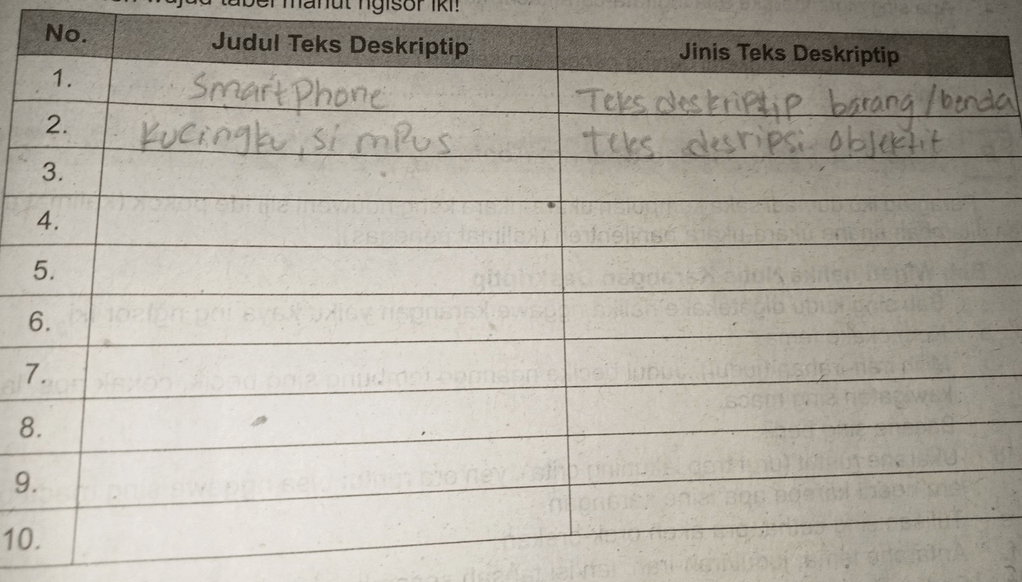 tabel manut ngisor iki!
No. Judul Teks Deskriptip Jinis Teks Deskriptip
1. Smartphone Teks deskriptip barang/benda
2. Kucingku, si mPus teks desripsi objektif
3.
4.
5.
6.
7.
8.
9.
10.